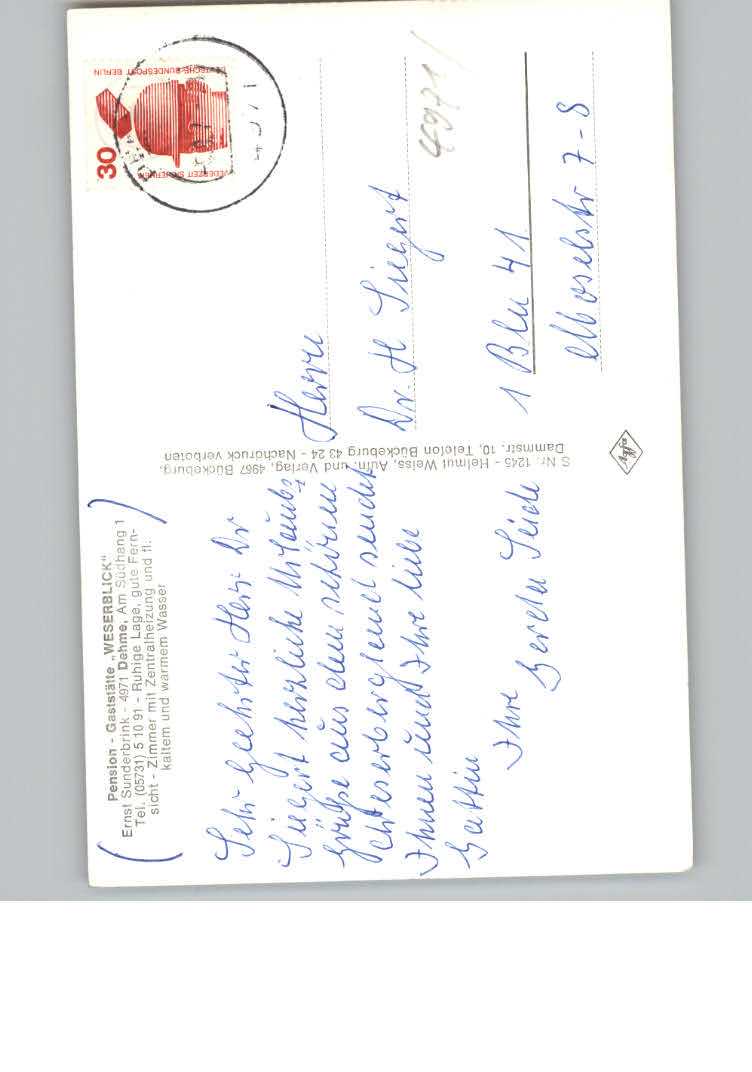 Pension - Gaststätte „WESERBLICK"
Ernst Sunderbrink - 4971 Dehme, Am Südhang 1
Tel. (05731) 5 10 91 - Ruhige Lage, gute Fern-
sicht - Zimmer mit Zentralheizung und fl.
kaltem und warmem Wasser
Sehr geehrter Herr Dr
Siegert herzliche Urlaubs-
grüße aus dem schönen
Weserbergland sendet
Ihnen und Ihre liebe
Gattin
Ihre
Gerda Seide
S Nr. 1245 - Helmut Weiss, Aufn. und Verlag, 4967 Bückeburg,
Dammstr. 10, Telefon Bückeburg 43 24 - Nachdruck verboten
Agfa
30
DEUTSCHE BUNDESPOST BERLIN
JEDERZEIT SICHERHEIT
4971
Herrn
Dr. H Siegert
1 Bln 41
Moselstr 7-8